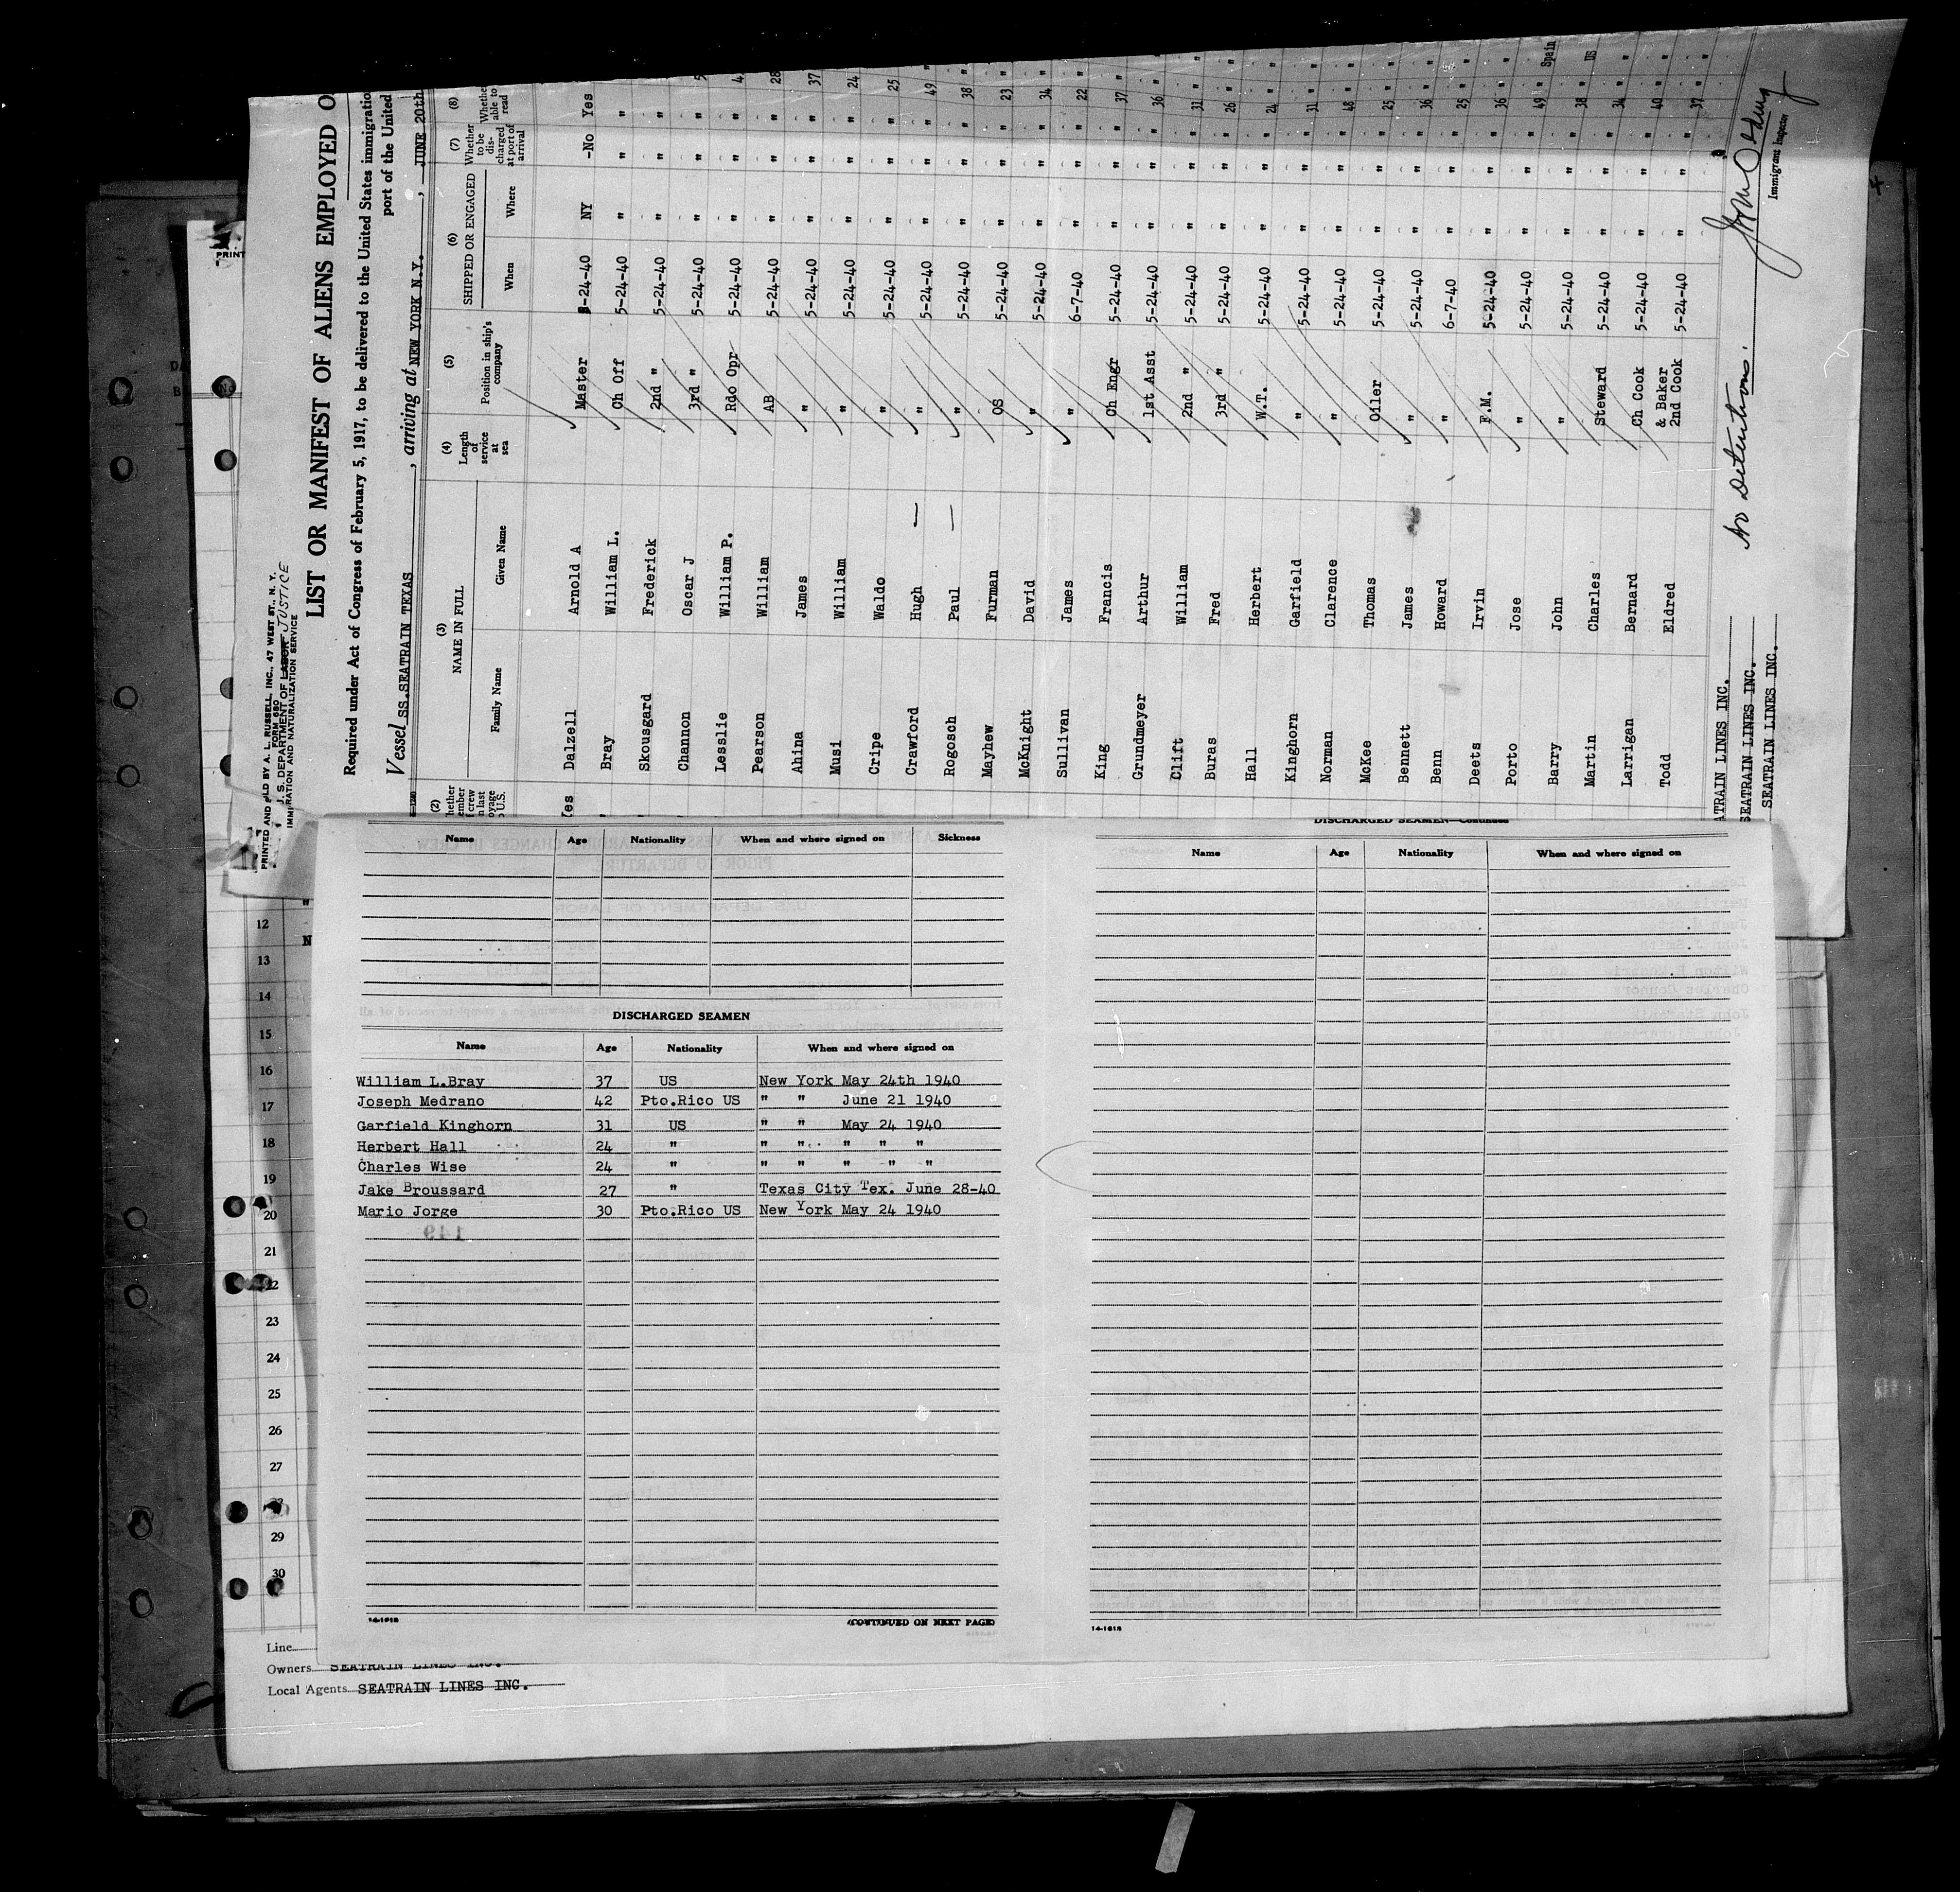 PRINTED AND SOLD BY A. L. RUSSELL, INC., 47 WEST ST., N. Y.
FORM 680
U. S. DEPARTMENT OF LABOR JUSTICE
IMMIGRATION AND NATURALIZATION SERVICE
LIST OR MANIFEST OF ALIENS EMPLOYED O
Required under Act of Congress of February 5, 1917, to be delivered to the United States immigratio
port of the United
Vessel SS.SEATRAIN TEXAS , arriving at NEW YORK N.Y. , JUNE 20th
(2) (3) (4) (5) (6) (7) (8)
NAME IN FULL SHIPPED OR ENGAGED
Family Name Given Name Length of service at sea Position in ship's company When Where Whether to be discharged at port of arrival Whether able to read
Dalzell Arnold A Master 5-24-40 NY -No Yes
Bray William L. Ch Off 5-24-40 " " "
Skousgard Frederick 2nd " 5-24-40 " " "
Channon Oscar J 3rd " 5-24-40 " " " 5
Lesslie William P. Rdo Opr 5-24-40 " " " 4
Pearson William AB 5-24-40 " " " 28
Ahina James " 5-24-40 " " " 37
Musi William " 5-24-40 " " " 24
Cripe Waldo " 5-24-40 " " " 25
Crawford Hugh — " 5-24-40 " " " 49 "
Rogosch Paul — " 5-24-40 " " " 38 "
Mayhew Furman OS 5-24-40 " " " 23 "
McKnight David " 5-24-40 " " " 34 "
Sullivan James " 6-7-40 " " " 22 "
King Francis Ch Engr 5-24-40 " " " 37 "
Grundmeyer Arthur 1st Asst 5-24-40 " " " 36 "
Clift William 2nd " 5-24-40 " " " 31 "
Buras Fred 3rd " 5-24-40 " " " 26 "
Hall Herbert W.T. 5-24-40 " " " 24 "
Kinghorn Garfield " 5-24-40 " " " 31 "
Norman Clarence " 5-24-40 " " " 48 "
McKee Thomas Oiler 5-24-40 " " " 25 "
Bennett James " 5-24-40 " " " 36 "
Benn Howard " 6-7-40 " " " 25 "
Deets Irvin F.M. 5-24-40 " " " 36 "
Porto Jose " 5-24-40 " " " 49 " Spain
Barry John " 5-24-40 " " " 38 " US
Martin Charles Steward 5-24-40 " " " 34 "
Larrigan Bernard Ch Cook 5-24-40 " " " 40 "
& Baker
Todd Eldred 2nd Cook 5-24-40 " " " 37 "
No Detentions.
Immigrant Inspector
ATRAIN LINES INC.
SEATRAIN LINES INC.
SEATRAIN LINES INC.
Name Age Nationality When and where signed on Sickness
DISCHARGED SEAMEN
Name Age Nationality When and where signed on
William L.Bray 37 US New York May 24th 1940
Joseph Medrano 42 Pto.Rico US " " June 21 1940
Garfield Kinghorn 31 US " " May 24 1940
Herbert Hall 24 " " " " " "
Charles Wise 24 " " " " " "
Jake Broussard 27 " Texas City Tex. June 28-40
Mario Jorge 30 Pto.Rico US New York May 24 1940
14-1618 (CONTINUED ON NEXT PAGE)
DISCHARGED SEAMEN—Continued
Name Age Nationality When and where signed on
14-1618
12
13
14
15
16
17
18
19
20
21
22
23
24
25
26
27
29
30
Line
Owners SEATRAIN LINES INC.
Local Agents SEATRAIN LINES INC.